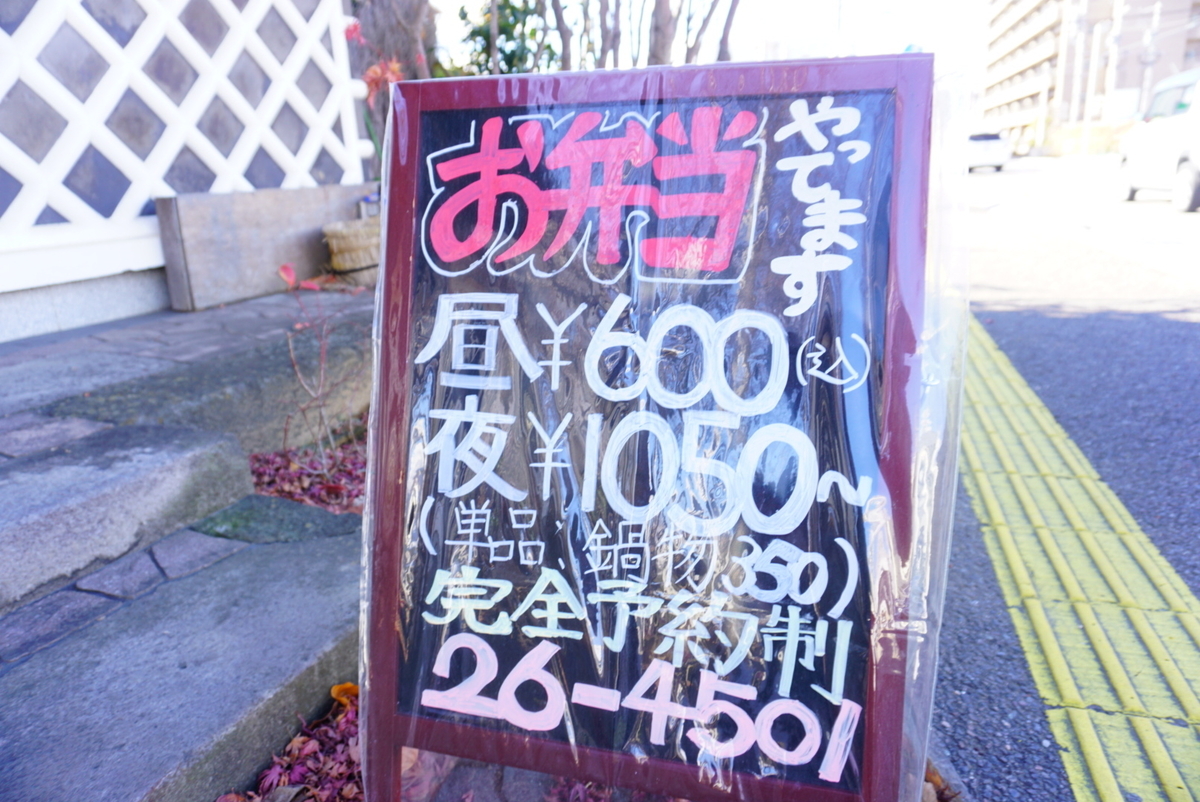 お弁当
やってます
昼¥600(込)
夜¥1050~
(単品、鍋物350)
完全予約制
26-4501